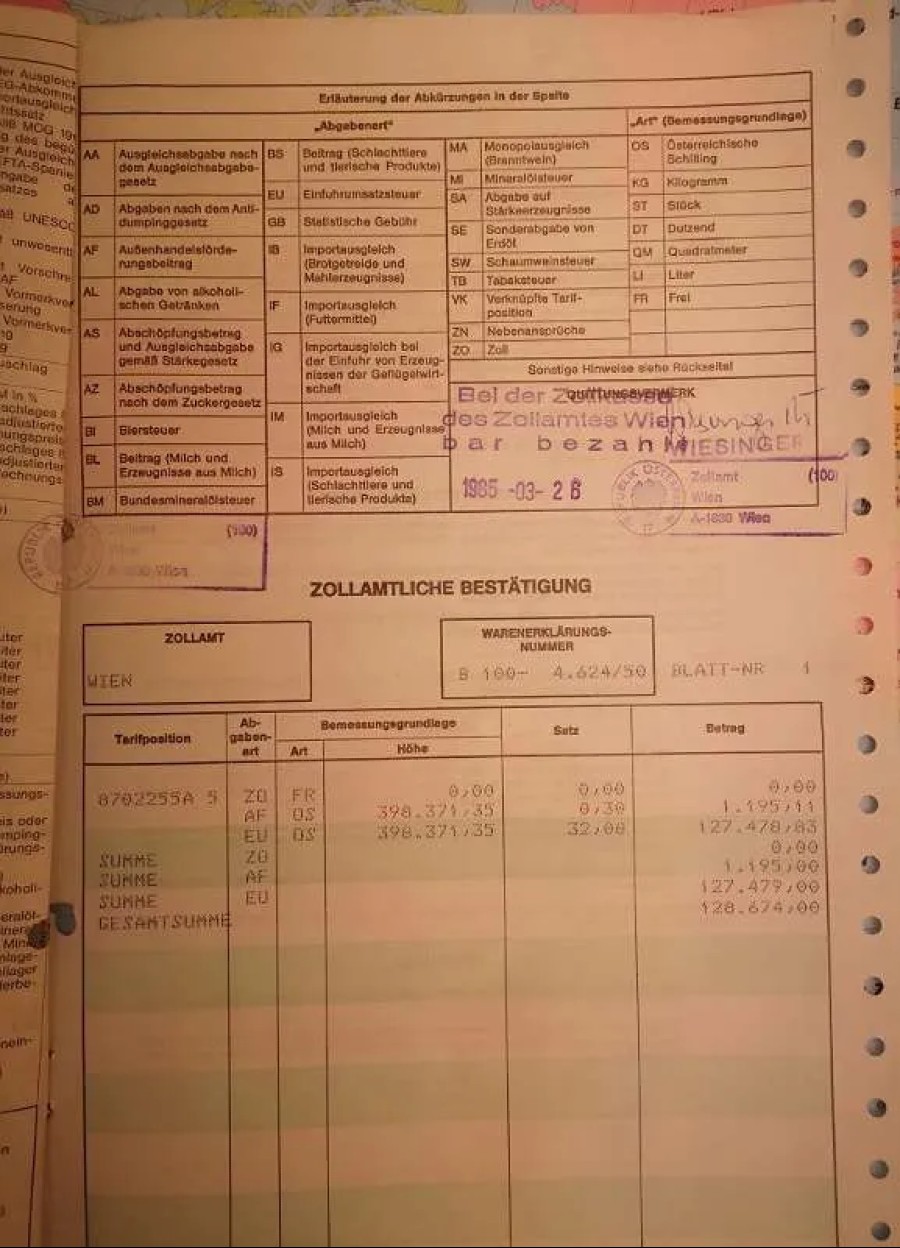 Erläuterung der Abkürzungen in der Spalte
„Abgabenart"
„Art" (Bemessungsgrundlage)
AA Ausgleichsabgabe nach
dem Ausgleichsabgabe-
gesetz
AD Abgaben nach dem Anti-
dumpinggesetz
AF Außenhandelsförde-
rungsbeitrag
AL Abgabe von alkoholi-
schen Getränken
AS Abschöpfungsbetrag
und Ausgleichsabgabe
gemäß Stärkegesetz
AZ Abschöpfungsbetrag
nach dem Zuckergesetz
BI Biersteuer
BL Beitrag (Milch und
Erzeugnisse aus Milch)
BM Bundesmineralölsteuer
BS Beitrag (Schlachttiere
und tierische Produkte)
EU Einfuhrumsatzsteuer
GB Statistische Gebühr
IB Importausgleich
(Brotgetreide und
Mahlerzeugnisse)
IF Importausgleich
(Futtermittel)
IG Importausgleich bei
der Einfuhr von Erzeug-
nissen der Geflügelwirt-
schaft
IM Importausgleich
(Milch und Erzeugnisse
aus Milch)
IS Importausgleich
(Schlachttiere und
tierische Produkte)
MA Monopolausgleich
(Branntwein)
MI Mineralölsteuer
SA Abgabe auf
Stärkeerzeugnisse
SE Sonderabgabe von
Erdöl
SW Schaumweinsteuer
TB Tabaksteuer
VK Verknüpfte Tarif-
position
ZN Nebenansprüche
ZO Zoll
OS Österreichische
Schilling
KG Kilogramm
ST Stück
DT Dutzend
QM Quadratmeter
LI Liter
FR Frei
Sonstige Hinweise siehe Rückseite!
QUITTUNGSVERMERK
Bei der
des Zollamtes Wien
bar bezahlt
WIESINGER
1985 -03- 26
Zollamt (100)
Wien
A-1030 Wien
Zollamt (100)
Wien
A-1030 Wien
ZOLLAMTLICHE BESTÄTIGUNG
ZOLLAMT
WIEN
WARENERKLÄRUNGS-
NUMMER
B 100- 4.624/50 BLATT-NR 1
Tarifposition Ab-
gaben-
art Bemessungsgrundlage Satz Betrag
Art Höhe
8702255A 5 ZO FR 0,00 0,00 0,00
AF OS 398.371,35 0,30 1.195,11
EU OS 398.371,35 32,00 127.478,83
SUMME ZO 0,00
SUMME AF 1.195,00
SUMME EU 127.479,00
GESAMTSUMME 128.674,00